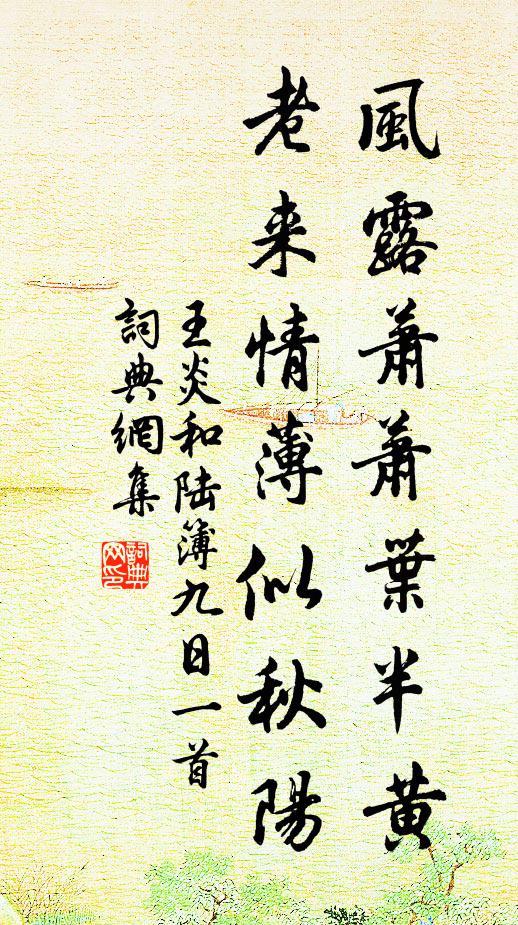 風露蕭蕭葉半黃
老来情薄似秋陽
王炎和陆簿九日一首
詞典網集
詞典网印